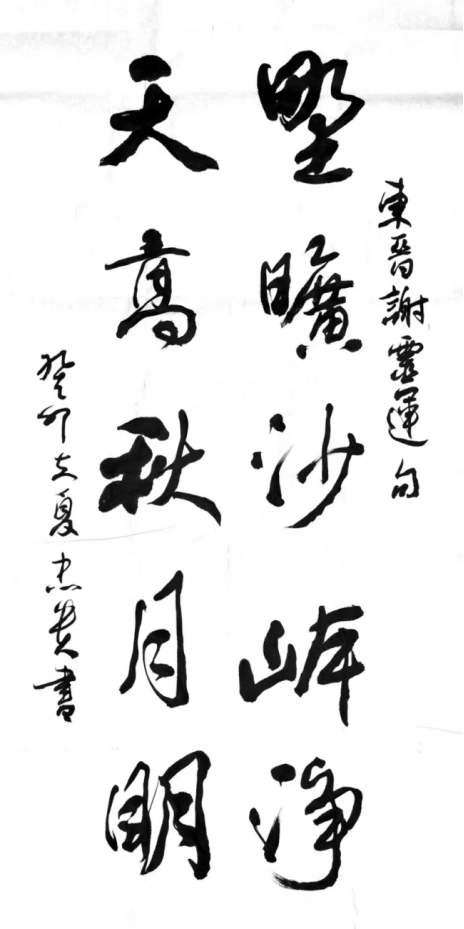 東晋謝靈運句
野曠沙岸淨
天高秋月明
癸卯立夏忠貴書